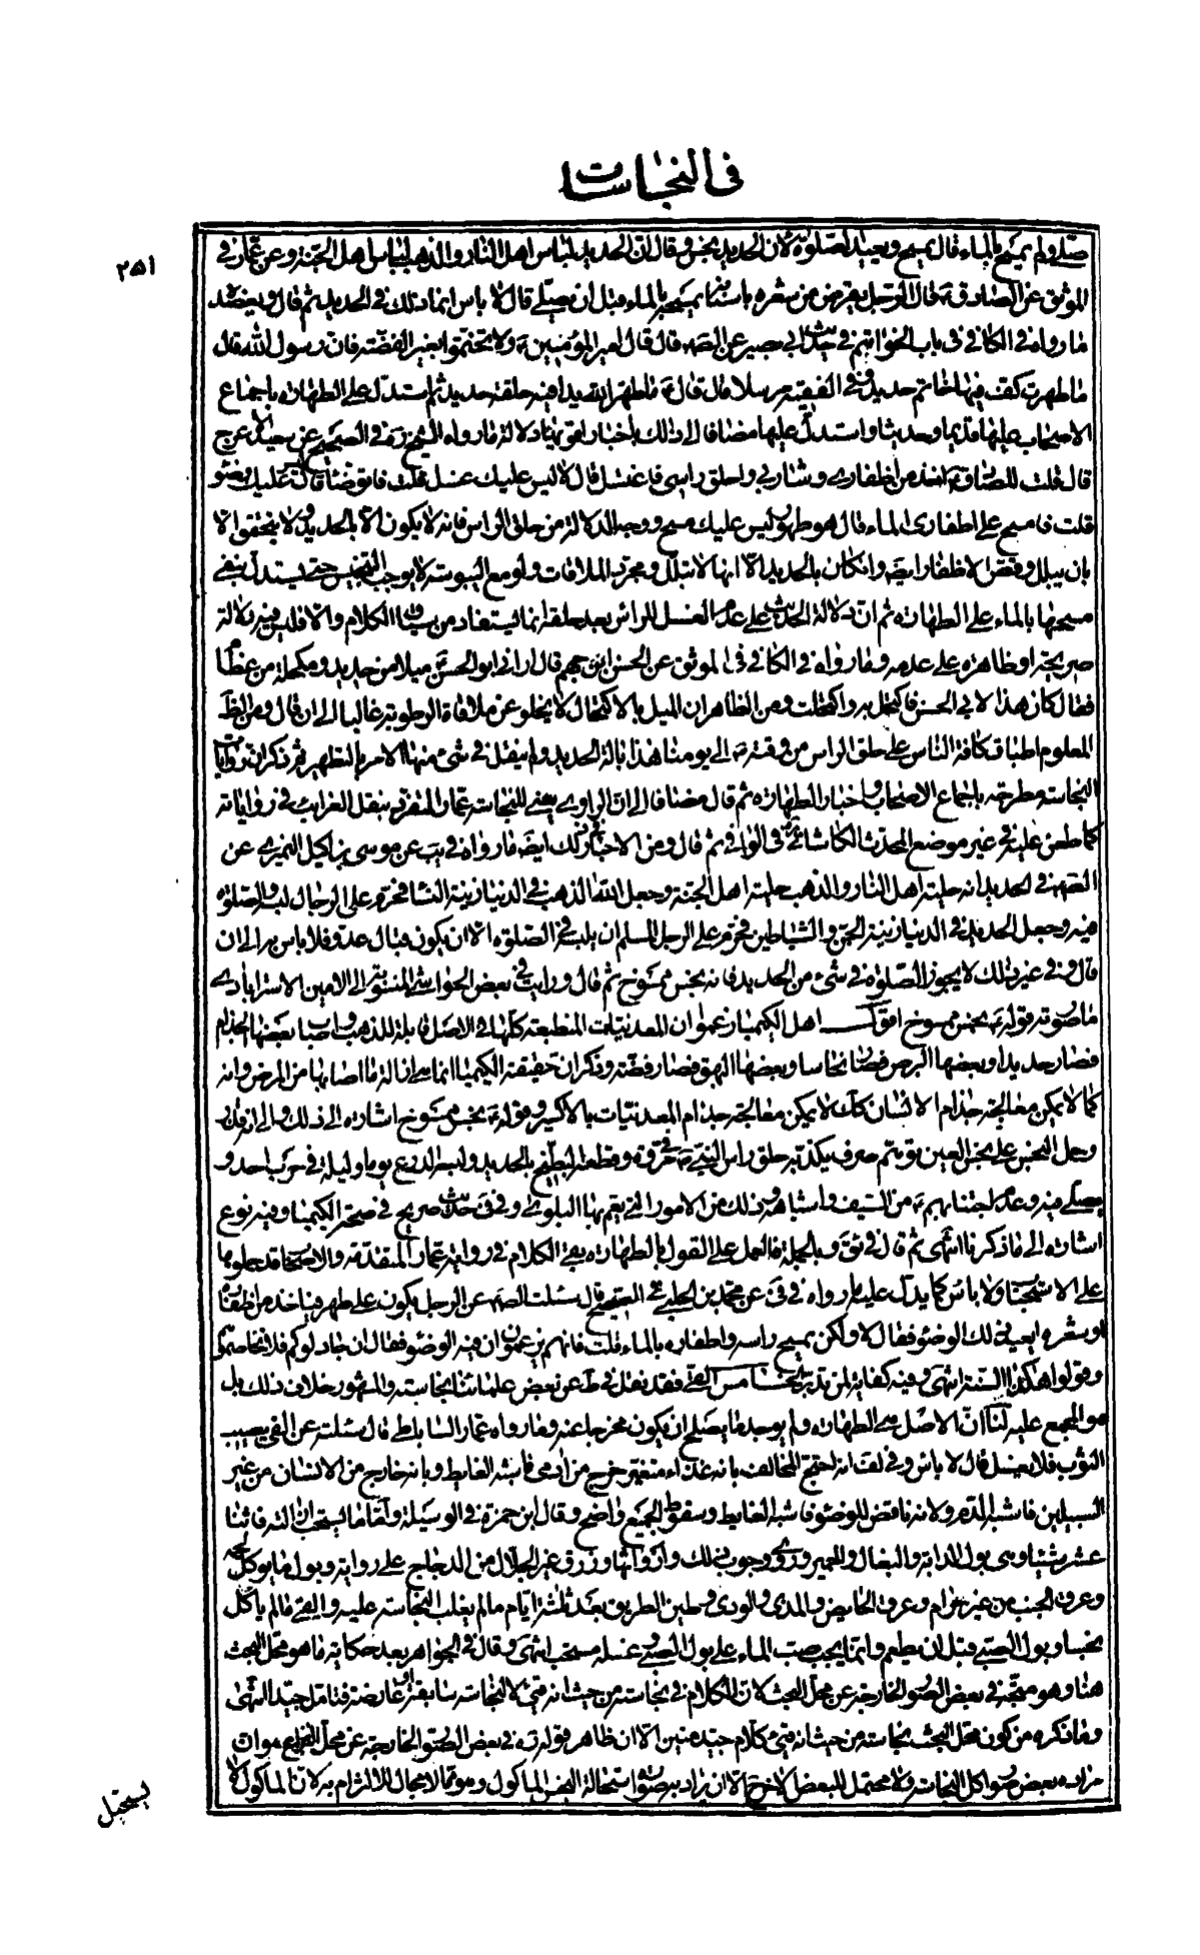 فى النجاسات
٢٥١
صلى ولم يمسح بالماء قال يمسح ويعيد الصلوة لان الحديد نجس وقال لان الحديد لباس اهل النار والذهب لباس اهل الجنة وعن عمار فى
الموثق عن الصادق قال الرجل يقرض من شعره باسنانه يمسحه بالماء قبل ان يصلى قال لا باس انما ذلك فى الحديد ثم قال ويعضده
ما رواه فى الكافى فى باب الخواتيم فى حديث ابى بصير عن قال قال امير المؤمنين ولا تختموا بغير الفضة فان رسول الله قال
ما طهرت كف فيها خاتم حديد وفى الفقيه مرسلا قال قال ما طهر الله يدا فيها حلقة حديد ثم استدل على الطهارة باجماع
الاصحاب عليها قديما وحديثا واستدل عليها مضافا الى ذلك باخبار دلالة ما رواه الشيخ فى الصحيح عن سعيد الاعرج
قال قلت للصادق اخذ من اظفارى وشاربى واحلق راسى فاغتسل قال لا ليس عليك غسل قلت فاتوضأ قال لا ليس عليك وضوء
قلت فامسح على اظفارى الماء قال هو طهور ليس عليك مسح ووجه الدلالة من حلق الراس فانه لا يكون الا بالحديد ولا يتحقق الا
بان يبلل وقص الاظفار ايضا وان كان بالحديد الا انها لا تبلل ومجرد الملاقات ولو مع اليبوسة لا يوجب التنجيس حتى يستدل بنفى
مسحها بالماء على الطهارة ثم ان دلالة الحديث على عدم الغسل للراس بعد حلقه انما يستفاد من سياق الكلام والا فليس فيه دلالة
صريحة او ظاهرة على عدمه وما رواه فى الكافى فى الموثق عن الحسن بن جهم قال ارانى ابو الحسن ميلا من حديد ومكحلة من عظام
فقال كان هذا لابى الحسن فاكتحل به واكتحلت ومن الظاهر ان الميل بالاكتحال لا يخلو عن ملاقاة الرطوبة غالبا الى ان قال ومن
المعلوم اطباق كافة الناس على حلق الراس من وقته الى يومنا هذا بالة الحديد ولم ينقل فى شىء منها الامر بالتطهير ثم ذكر ان روايات
النجاسة مطرحة باجماع الاصحاب واخبار الطهارة ثم قال مضافا الى ان الراوى يعنى للنجاسة عمار المنفرد بنقل الغرايب فى رواياته
كما طعن عليه فى غير موضع المحدث الكاشانى فى الوافى ثم قال ومن الاخبار فى ذلك ايضا ما رواه فى يب عن موسى بن اكيل النميرى عن
فى الحديد انه حلية اهل النار والذهب حلية اهل الجنة وجعل الله الذهب فى الدنيا زينة النساء فحرم على الرجال لبسه والصلوة
فيه وجعل الحديد فى الدنيا زينة الجن والشياطين فحرم على الرجل المسلم ان يلبسه فى الصلوة الا ان يكون قبال عدو فلا باس به الى ان
قال وفى غير ذلك لا يجوز الصلوة فى شىء من الحديد فانه نجس ممسوخ ثم قال ورايت فى بعض الحواشى المنسوبة الى الامين الاسترابادى
ما صورته قوله نجس ممسوخ اقول اهل الكيميا زعموا ان المعدنيات المنطبعة كلها فى الاصل قابلة للذهب واصاب بعضها الجذام
فصار حديدا وبعضها البرص فصار نحاسا وبعضها البهق فصار فضة وذكر ان حقيقة الكيميا انما هى ازالة ما اصابها من المرض وانه
كما لا يمكن معالجة جذام الانسان كك لا يمكن معالجة جذام المعدنيات بالاكسير وقوله نجس ممسوخ اشارة الى ذلك
وحمل النجس على نجس العين توهم صرف يكذبه حلق راس النبى وقطعه البطيخ بالحديد ولبسه الدرع يوما وليلة فى حرب احد و
يصلى فيه وعدم اجتنابهم من السيف واشباه ذلك من الامور التى يعم بها البلوى وفى حديث صريح فى صحة الكيميا وفيه نوع
اشارة الى ما ذكرنا انتهى ثم قال فى وبالجملة فالعمل على القول بالطهارة بقى الكلام فى رواية عمار المتقدمة والاصحاب قد حملوها
على الاستحباب ولا باس كما يدل عليه ما رواه فى عن محمد بن الحلبى فى الصحيح قال سئلت عن الرجل يكون على طهر فياخذ من اظفاره
او شعره ايعيد ذلك الوضوء فقال لا ولكن يمسح راسه واظفاره بالماء قلت فانهم يزعمون ان فيه الوضوء فقال ان خاصموكم فلا تخاصموهم
وقولوا هكذا السنة انتهى وفيه كفاية لمن تدبر الخامس القىء فقد نقل فى ط عن بعض علمائنا نجاسته والمشهور خلاف ذلك بل
هو المجمع عليه لنا ان الاصل هى الطهارة ولم يوجد ما يصلح ان يكون مخرجا عنه وما رواه عمار الساباطى قال سئلته عن القىء يصيب
الثوب فلا يغسل قال لا باس وفى لف انه احتج المخالف بانه غذاء متغير خرج من ادمى فاشبه الغايط وبانه خارج من الانسان من غير
السبيلين فاشبه الدم ولانه ناقض للوضوء فاشبه الغايط وسقوط الجميع واضح وقال ابن حمزة فى الوسيلة واما ما يستحب ازالته فاثنا
عشر شيئا وهى بول الدابة والبغال والحمير وروى وجوب ذلك وارواثها وزرق غير الجلال من الدجاج على رواية وبول ما يوكل لحمه
وعرق الجنب من غير حرام وعرق الحايض والمذى والودى وطين الطريق بعد ثلثة ايام ما لم يغلب النجاسة عليه والقىء ما لم ياكل
نجسا وبول الصبى قبل ان يطعم وانما يجب صب الماء على بول الصبى وغسله مستحب انتهى وقال فى الجواهر بعد حكاية ما هو محل البحث
هنا وهو متجه فى بعض الصور الخارجة عن محل البحث لان الكلام فى نجاسته من حيث انه قىء لا لنجاسة سابقة او عارضة فتامل جيدا انتهى
وما ذكره من كون محل البحث نجاسته من حيث انه قىء كلام جيد متين الا ان ظاهر قوله فى بعض الصور الخارجة عن محل النزاع هو ان
مراده بعض صور اكل النجاسة ولا محتمل للبعض الاخر الا ان يراد به صورة استحالة النجس الماكول وهو مما لا مجال للالتزام به لان الماكول لا
يستحيل